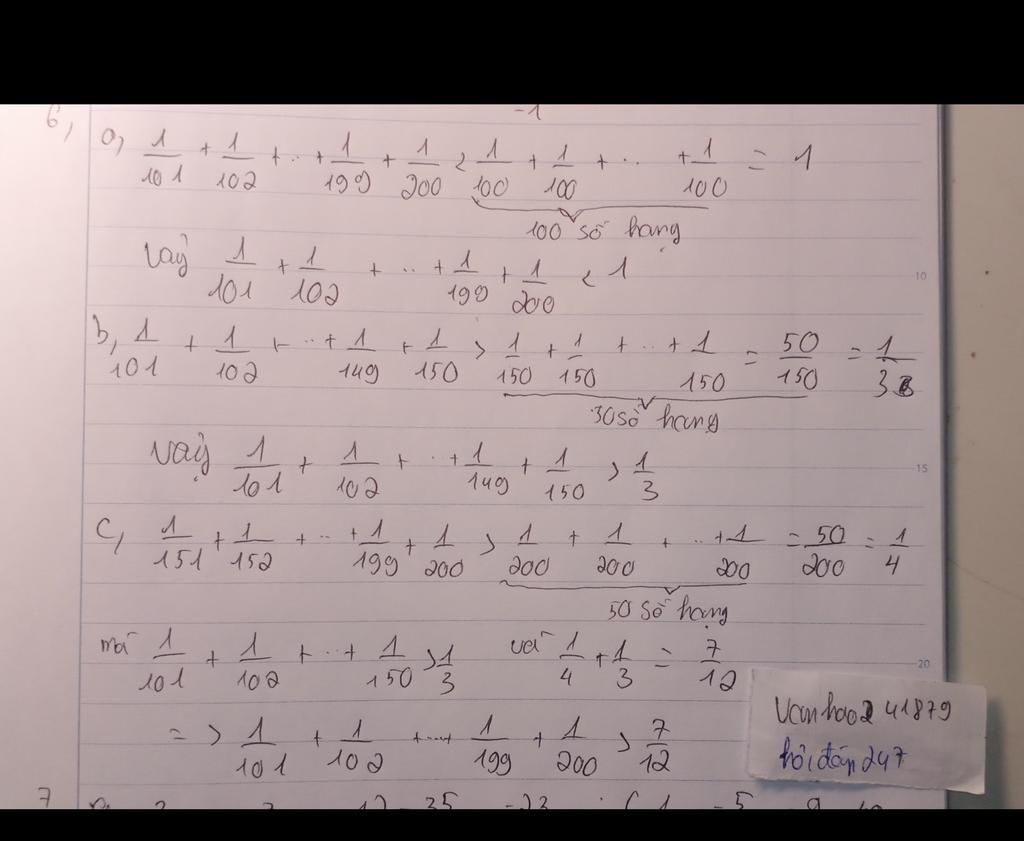 -1
6,
a, 1/101 + 1/102 + .. + 1/199 + 1/200 < 1/100 + 1/100 + .. + 1/100 = 1
100 số hạng
Vậy 1/101 + 1/102 + .. + 1/199 + 1/200 < 1
10
b, 1/101 + 1/102 + .. + 1/149 + 1/150 > 1/150 + 1/150 + .. + 1/150 = 50/150 = 1/3
30 số hạng
Vậy 1/101 + 1/102 + .. + 1/149 + 1/150 > 1/3
15
c, 1/151 + 1/152 + .. + 1/199 + 1/200 > 1/200 + 1/200 + .. + 1/200 = 50/200 = 1/4
50 số hạng
mà 1/101 + 1/102 + .. + 1/150 > 1/3 và 1/4 + 1/3 = 7/12
20
=> 1/101 + 1/102 + .... + 1/199 + 1/200 > 7/12
Vanhao241879
hỏi đáp 247
7